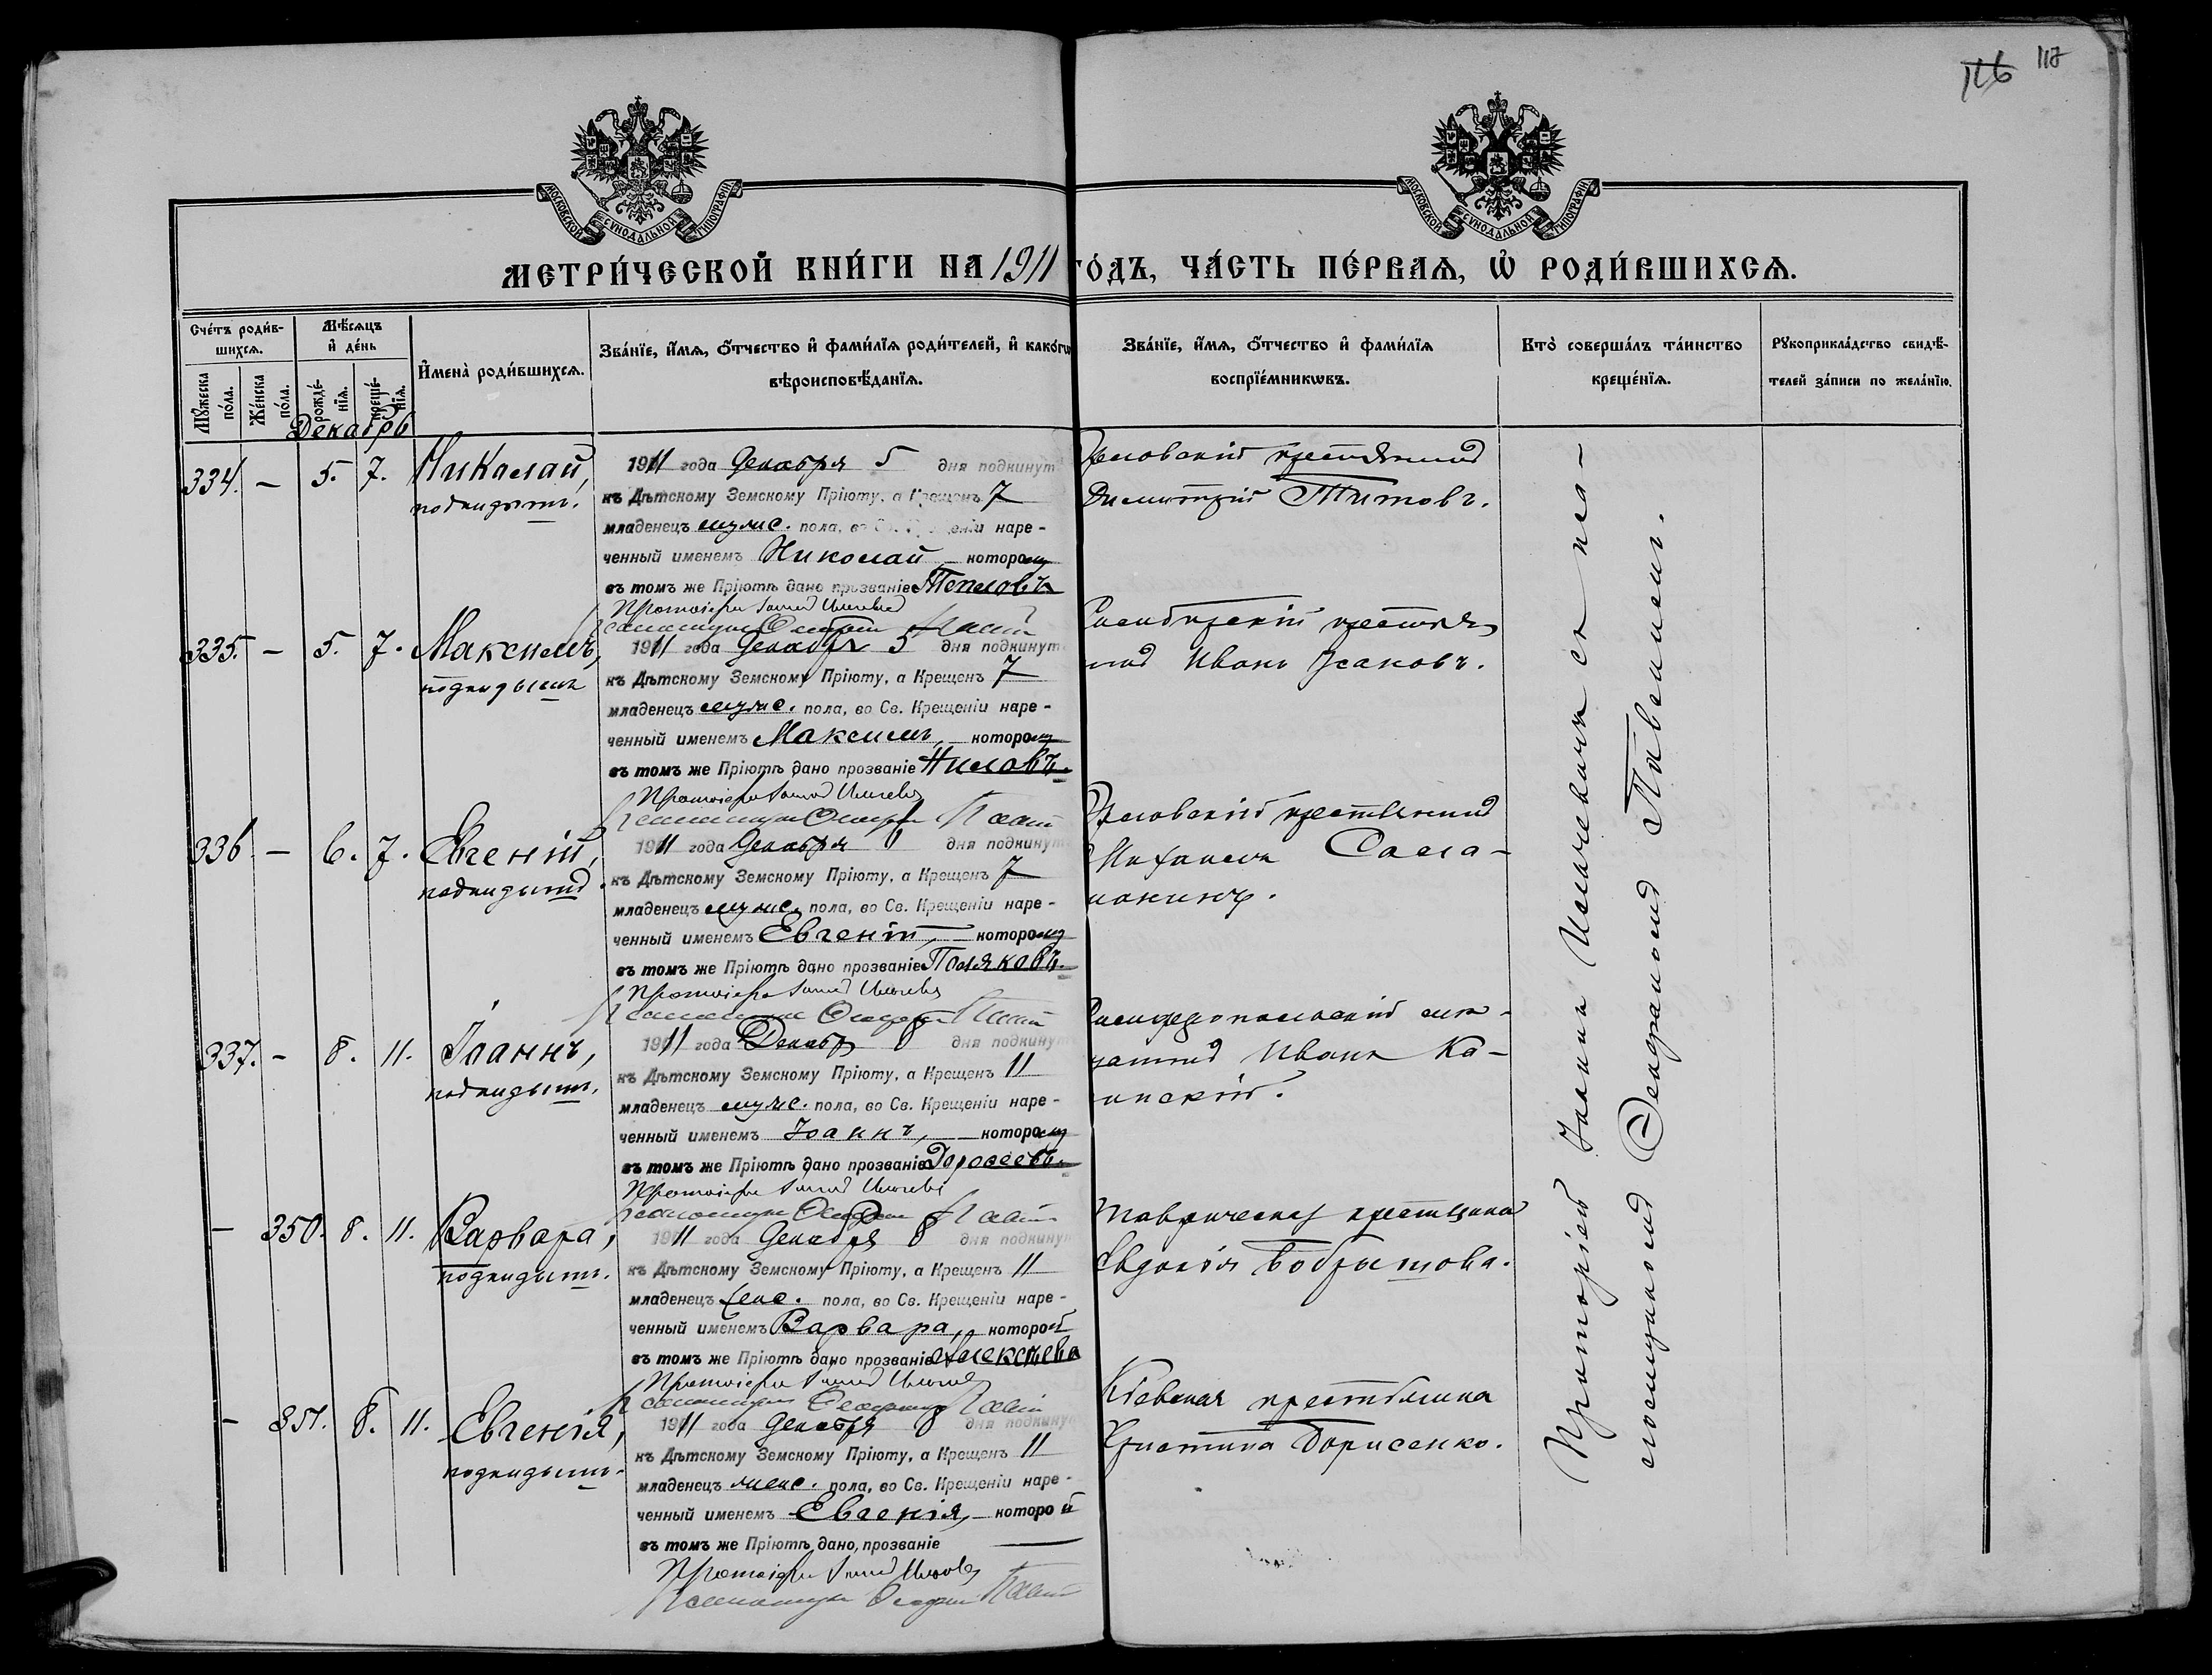 116 117
МОСКОВСКОЙ СѴНОДАЛЬНОЙ ТИПОГРАФІИ
МОСКОВСКОЙ СѴНОДАЛЬНОЙ ТИПОГРАФІИ
МЕТРИ́ЧЕСКОЙ КНИ́ГИ НА 1911 ГО́ДЪ, ЧА́СТЬ ПЕ́РВАѦ, Ѽ РОДИ́ВШИХСѦ.
Сче́тъ роди́в-
шихсѧ.
Мꙋ́жеска по́ла.
Же́нска по́ла.
Мѣ́сѧцъ и҆ де́нь
рожде́-
нїѧ.
креще́-
нїѧ.
Декабрь
И҆мена̀ роди́вшихсѧ.
Зва́нїе, и҆́мѧ, ѻ҆́тчество и҆ фами́лїѧ роди́телей, и҆ како́гѡ
вѣроисповѣ́данїѧ.
Зва́нїе, и҆́мѧ, ѻ҆́тчество и҆ фами́лїѧ
воспрїе́мникѡвъ.
Кто̀ соверша́лъ та́инство
креще́нїѧ.
Рꙋкоприкла́дство свидѣ́-
телей за́писи по жела́нїю.
334. — 5. 7. Николай,
подкидышъ.
1911 года Декабря 5 дня подкинут
къ Дѣтскому Земскому Пріюту, а Крещенъ 7
младенецъ муж. пола, во Св. Крещеніи наре-
ченный именемъ Николай котор ому
въ томъ же Пріютѣ дано прозваніе Тепловъ
Протоіерей
Псаломщикъ
крестьянинъ
Димитрій Титовъ.
335. — 5. 7. Максимъ,
подкидышъ
1911 года Декабря 5 дня подкинут
къ Дѣтскому Земскому Пріюту, а Крещенъ 7
младенецъ муж. пола, во Св. Крещеніи наре-
ченный именемъ Максимъ, котор ому
въ томъ же Пріютѣ дано прозваніе Ниловъ.
Протоіерей
Псаломщикъ
Симбирскій крестья
нинъ Иванъ Усановъ.
336. — 6. 7. Евгеній,
подкидышъ.
1911 года Декабря 6 дня подкинут
къ Дѣтскому Земскому Пріюту, а Крещенъ 7
младенецъ муж. пола, во Св. Крещеніи наре-
ченный именемъ Евгеній, котор ому
въ томъ же Пріютѣ дано прозваніе Поляковъ.
Протоіерей
Псаломщикъ
крестьянинъ
Михаилъ Сала-
337. — 8. 11. Іоаннъ,
подкидышъ.
1911 года Декабр 8 дня подкинут
къ Дѣтскому Земскому Пріюту, а Крещенъ 11
младенецъ муж. пола, во Св. Крещеніи наре-
ченный именемъ Іоаннъ, котор ому
въ томъ же Пріютѣ дано прозваніе Дорофеевъ.
Протоіерей
Псаломщикъ
Симферопольскій мѣ-
щанинъ Иванъ Ка-
— 350. 8. 11. Варвара,
подкидышъ.
1911 года Декабря 8 дня подкинут
къ Дѣтскому Земскому Пріюту, а Крещенъ 11
младенецъ жен. пола, во Св. Крещеніи наре-
ченный именемъ Варвара, котор ой
въ томъ же Пріютѣ дано прозваніе Алексѣева
Протоіерей
Псаломщикъ
Таврическая крестьянка
Евдокія Бобрышова.
— 351. 8. 11. Евгенія,
подкидышъ.
1911 года Декабря 8 дня подкинут
къ Дѣтскому Земскому Пріюту, а Крещенъ 11
младенецъ женс. пола, во Св. Крещеніи наре-
ченный именемъ Евгенія, котор ой
въ томъ же Пріютѣ дано, прозваніе —
Протоіерей
Псаломщикъ
Кіевская крестьянка
Христина Борисенко.
Протоіерей Іоаннъ съ пса-
ломщикомъ